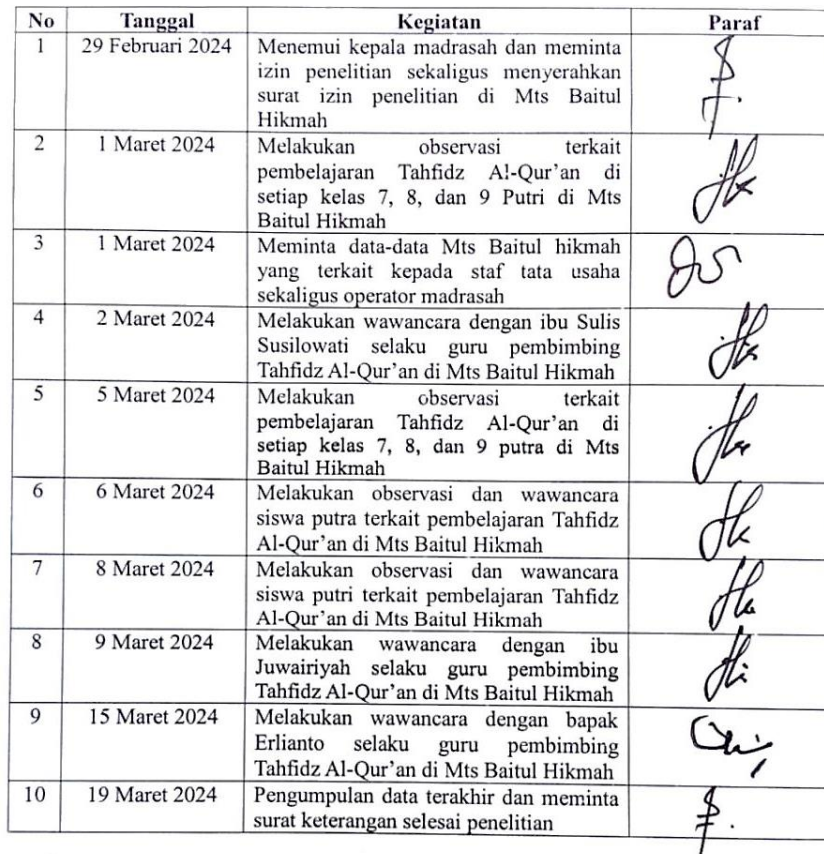 No Tanggal Kegiatan Paraf
1 29 Februari 2024 Menemui kepala madrasah dan meminta
izin penelitian sekaligus menyerahkan
surat izin penelitian di Mts Baitul
Hikmah
2 1 Maret 2024 Melakukan observasi terkait
pembelajaran Tahfidz Al-Qur'an di
setiap kelas 7, 8, dan 9 Putri di Mts
Baitul Hikmah
3 1 Maret 2024 Meminta data-data Mts Baitul hikmah
yang terkait kepada staf tata usaha
sekaligus operator madrasah
4 2 Maret 2024 Melakukan wawancara dengan ibu Sulis
Susilowati selaku guru pembimbing
Tahfidz Al-Qur'an di Mts Baitul Hikmah
5 5 Maret 2024 Melakukan observasi terkait
pembelajaran Tahfidz Al-Qur'an di
setiap kelas 7, 8, dan 9 putra di Mts
Baitul Hikmah
6 6 Maret 2024 Melakukan observasi dan wawancara
siswa putra terkait pembelajaran Tahfidz
Al-Qur'an di Mts Baitul Hikmah
7 8 Maret 2024 Melakukan observasi dan wawancara
siswa putri terkait pembelajaran Tahfidz
Al-Qur'an di Mts Baitul Hikmah
8 9 Maret 2024 Melakukan wawancara dengan ibu
Juwairiyah selaku guru pembimbing
Tahfidz Al-Qur'an di Mts Baitul Hikmah
9 15 Maret 2024 Melakukan wawancara dengan bapak
Erlianto selaku guru pembimbing
Tahfidz Al-Qur'an di Mts Baitul Hikmah
10 19 Maret 2024 Pengumpulan data terakhir dan meminta
surat keterangan selesai penelitian